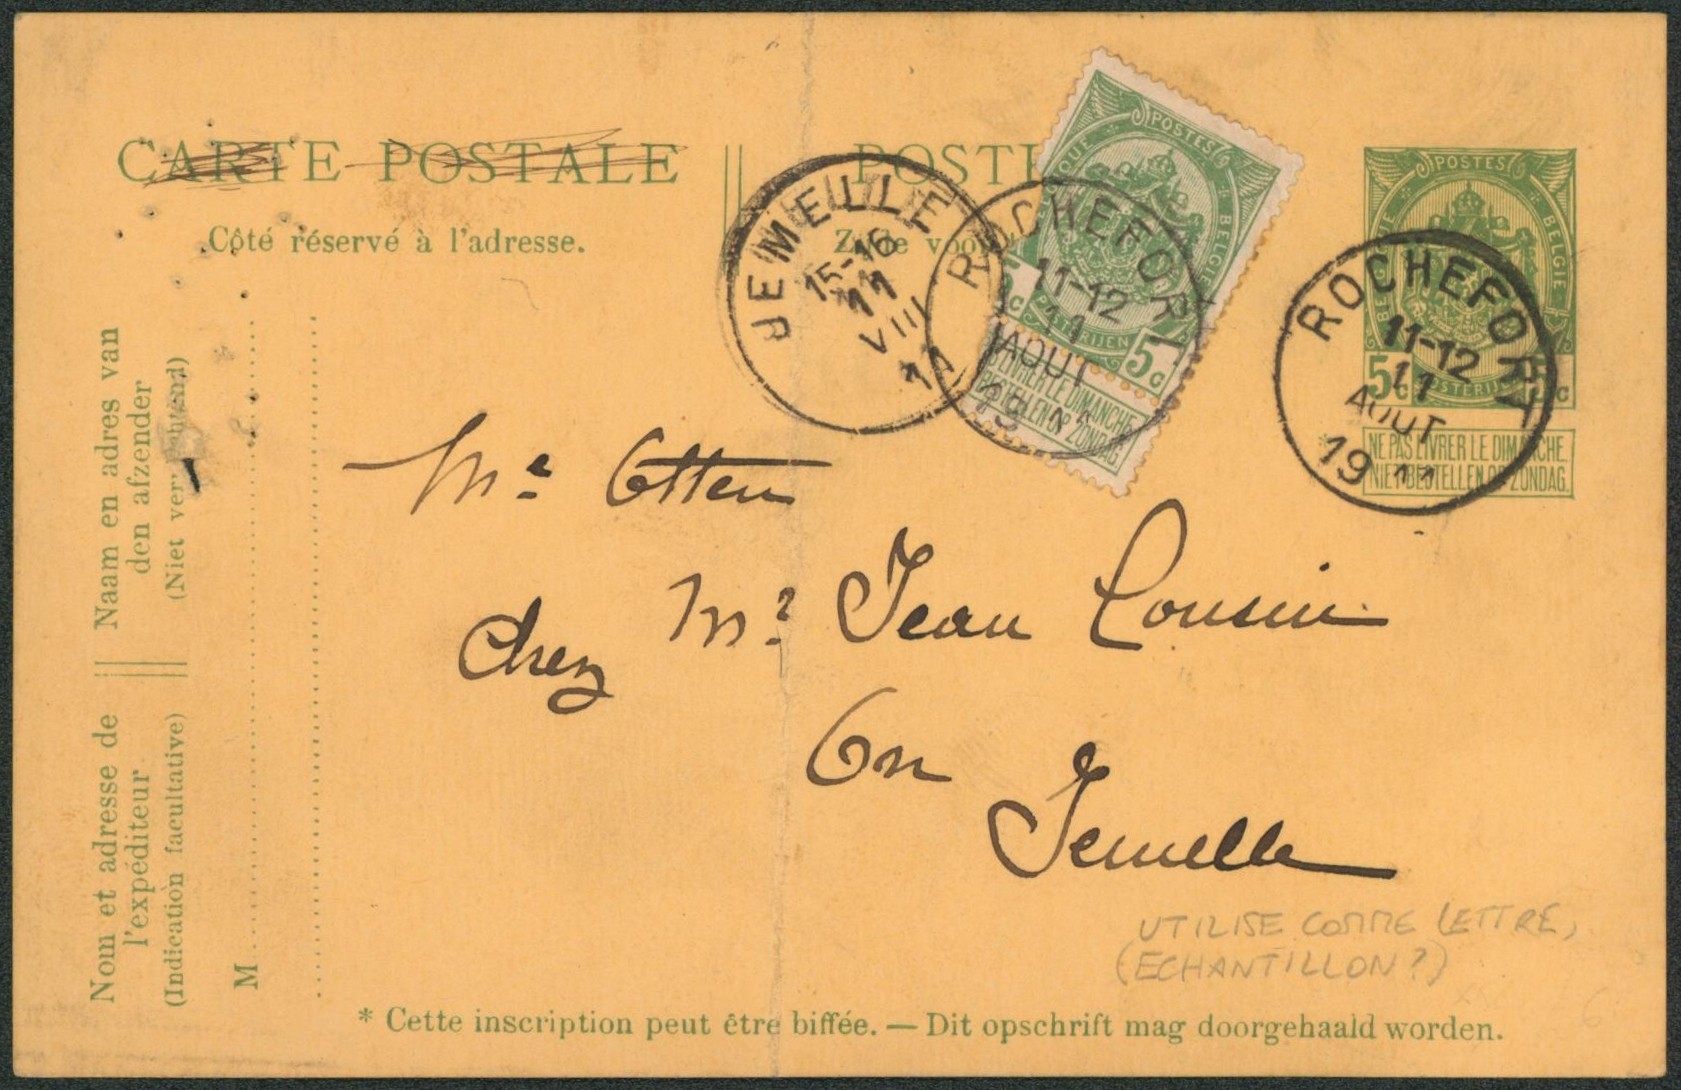 CARTE POSTALE
POSTK
Côté réservé à l'adresse.
Zijde voor
POSTES
BELGIQUE BELGIË
5c POSTERIJEN 5c
NE PAS LIVRER LE DIMANCHE
NIET BESTELLEN OP ZONDAG
POSTES
BELGIQUE BELGIË
5c POSTERIJEN 5c
NE PAS LIVRER LE DIMANCHE.
NIET BESTELLEN OP ZONDAG.
JEMELLE
15-16
11
VIII
11
ROCHEFORT
11-12
11
AOUT
19 11
ROCHEFORT
11-12
11
AOUT
19 11
Naam en adres van
den afzender
(Niet verplichtend)
Nom et adresse de
l'expéditeur
(Indication facultative)
M
Mr Otten
Chez Mr Jean Cousin
On
Jemelle
UTILISE COMME LETTRE,
(ECHANTILLON ?)
* Cette inscription peut être biffée. — Dit opschrift mag doorgehaald worden.